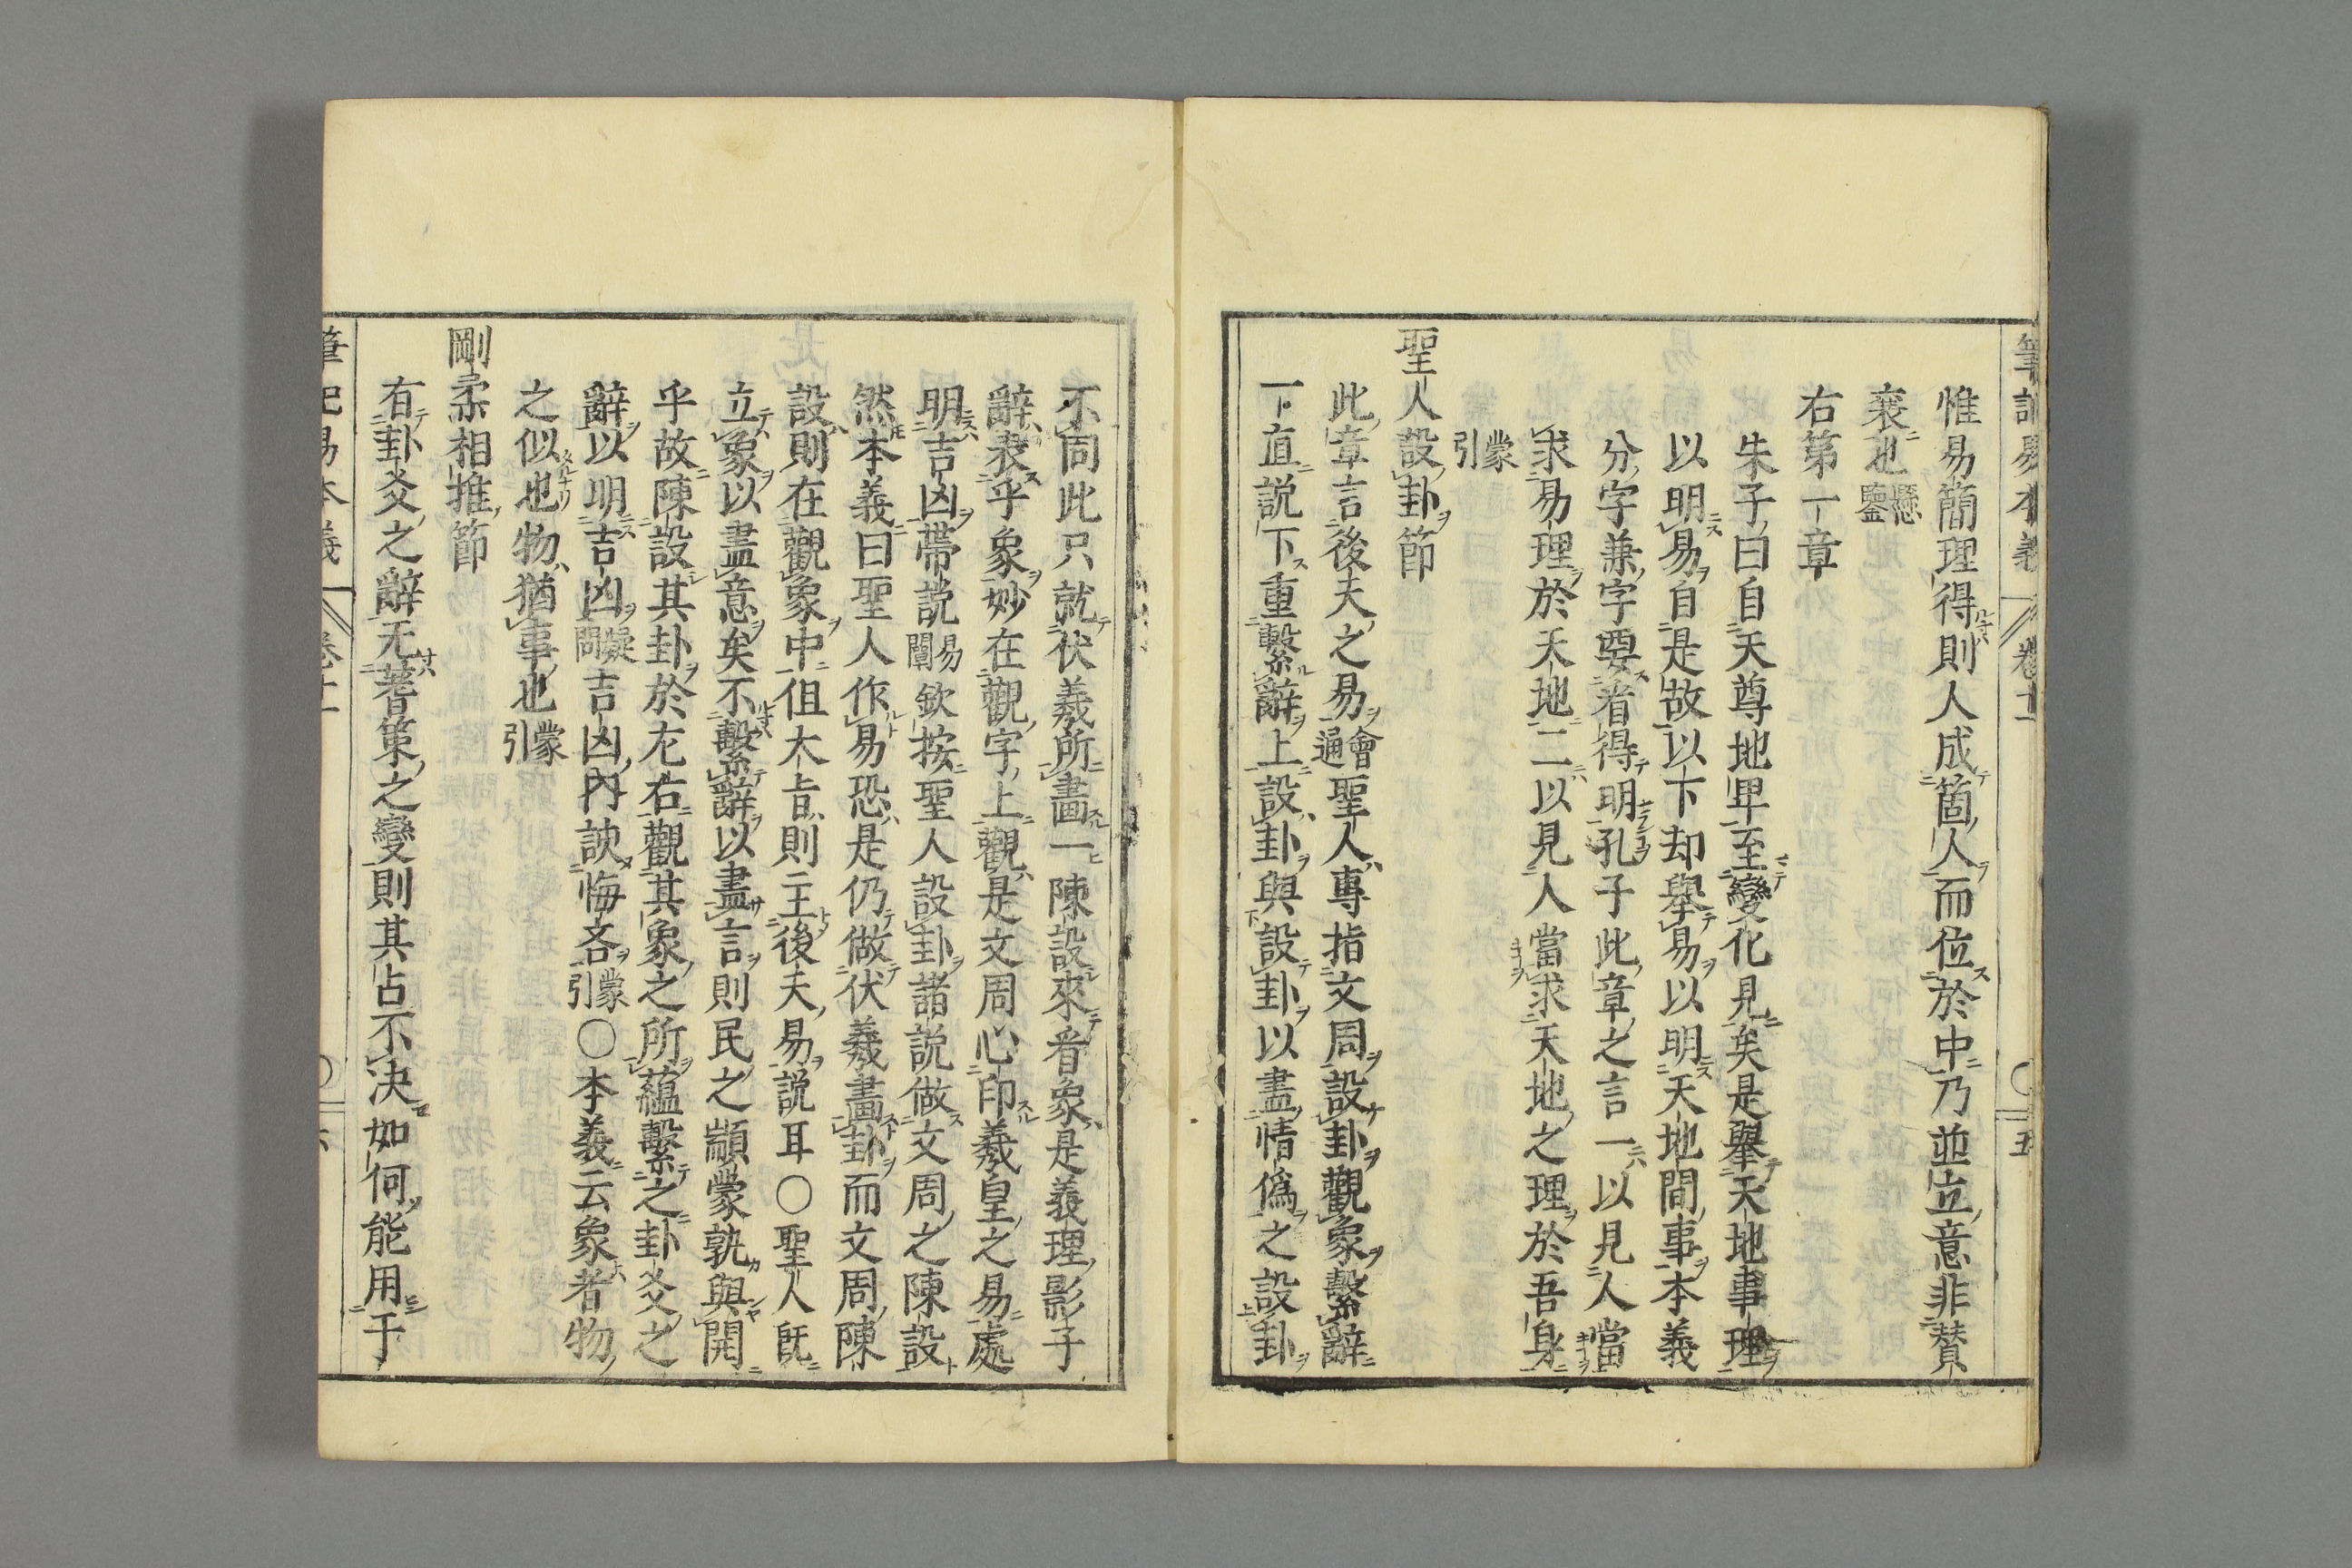 筆記易本義 卷十一 五
惟易簡理得則人成箇人而位於中乃並立意非賛
襄也懸鑒
右第一章
朱子曰自天尊地卑至變化見矣是舉天地事理
以明易自是故以下却舉易以明天地間事本義
分字兼字要看得明孔子此章之言一以見人當
求易理於天地二以見人當求天地之理於吾身
蒙引
聖人設卦節
此章言後天之易會通聖人專指文周設卦觀象繫辭
一直説下重繫辭上設卦與設卦以盡情僞之設卦
不同此只就伏羲所畫一陳設來看象是義理影子
辭隶乎象妙在觀字上觀是文周心印羲皇之易處
明吉凶帶説易闡欽按聖人設卦諸説做文周之陳設
然本義曰聖人作易恐是仍做伏羲畫卦而文周陳
設則在觀象中但大旨則主後天易説耳〇聖人旣
立象以盡意矣不繫辭以盡言則民之顓蒙孰與開
乎故陳設其卦於左右觀其象之所蘊繫之卦爻之
辭以明吉凶疑問吉凶内諛悔吝蒙引〇本義云象者物
之似也物猶事也蒙引
剛柔相推節
有卦爻之辭无蓍策之變則其占不决如何能用于
筆記易本義 卷十一 六